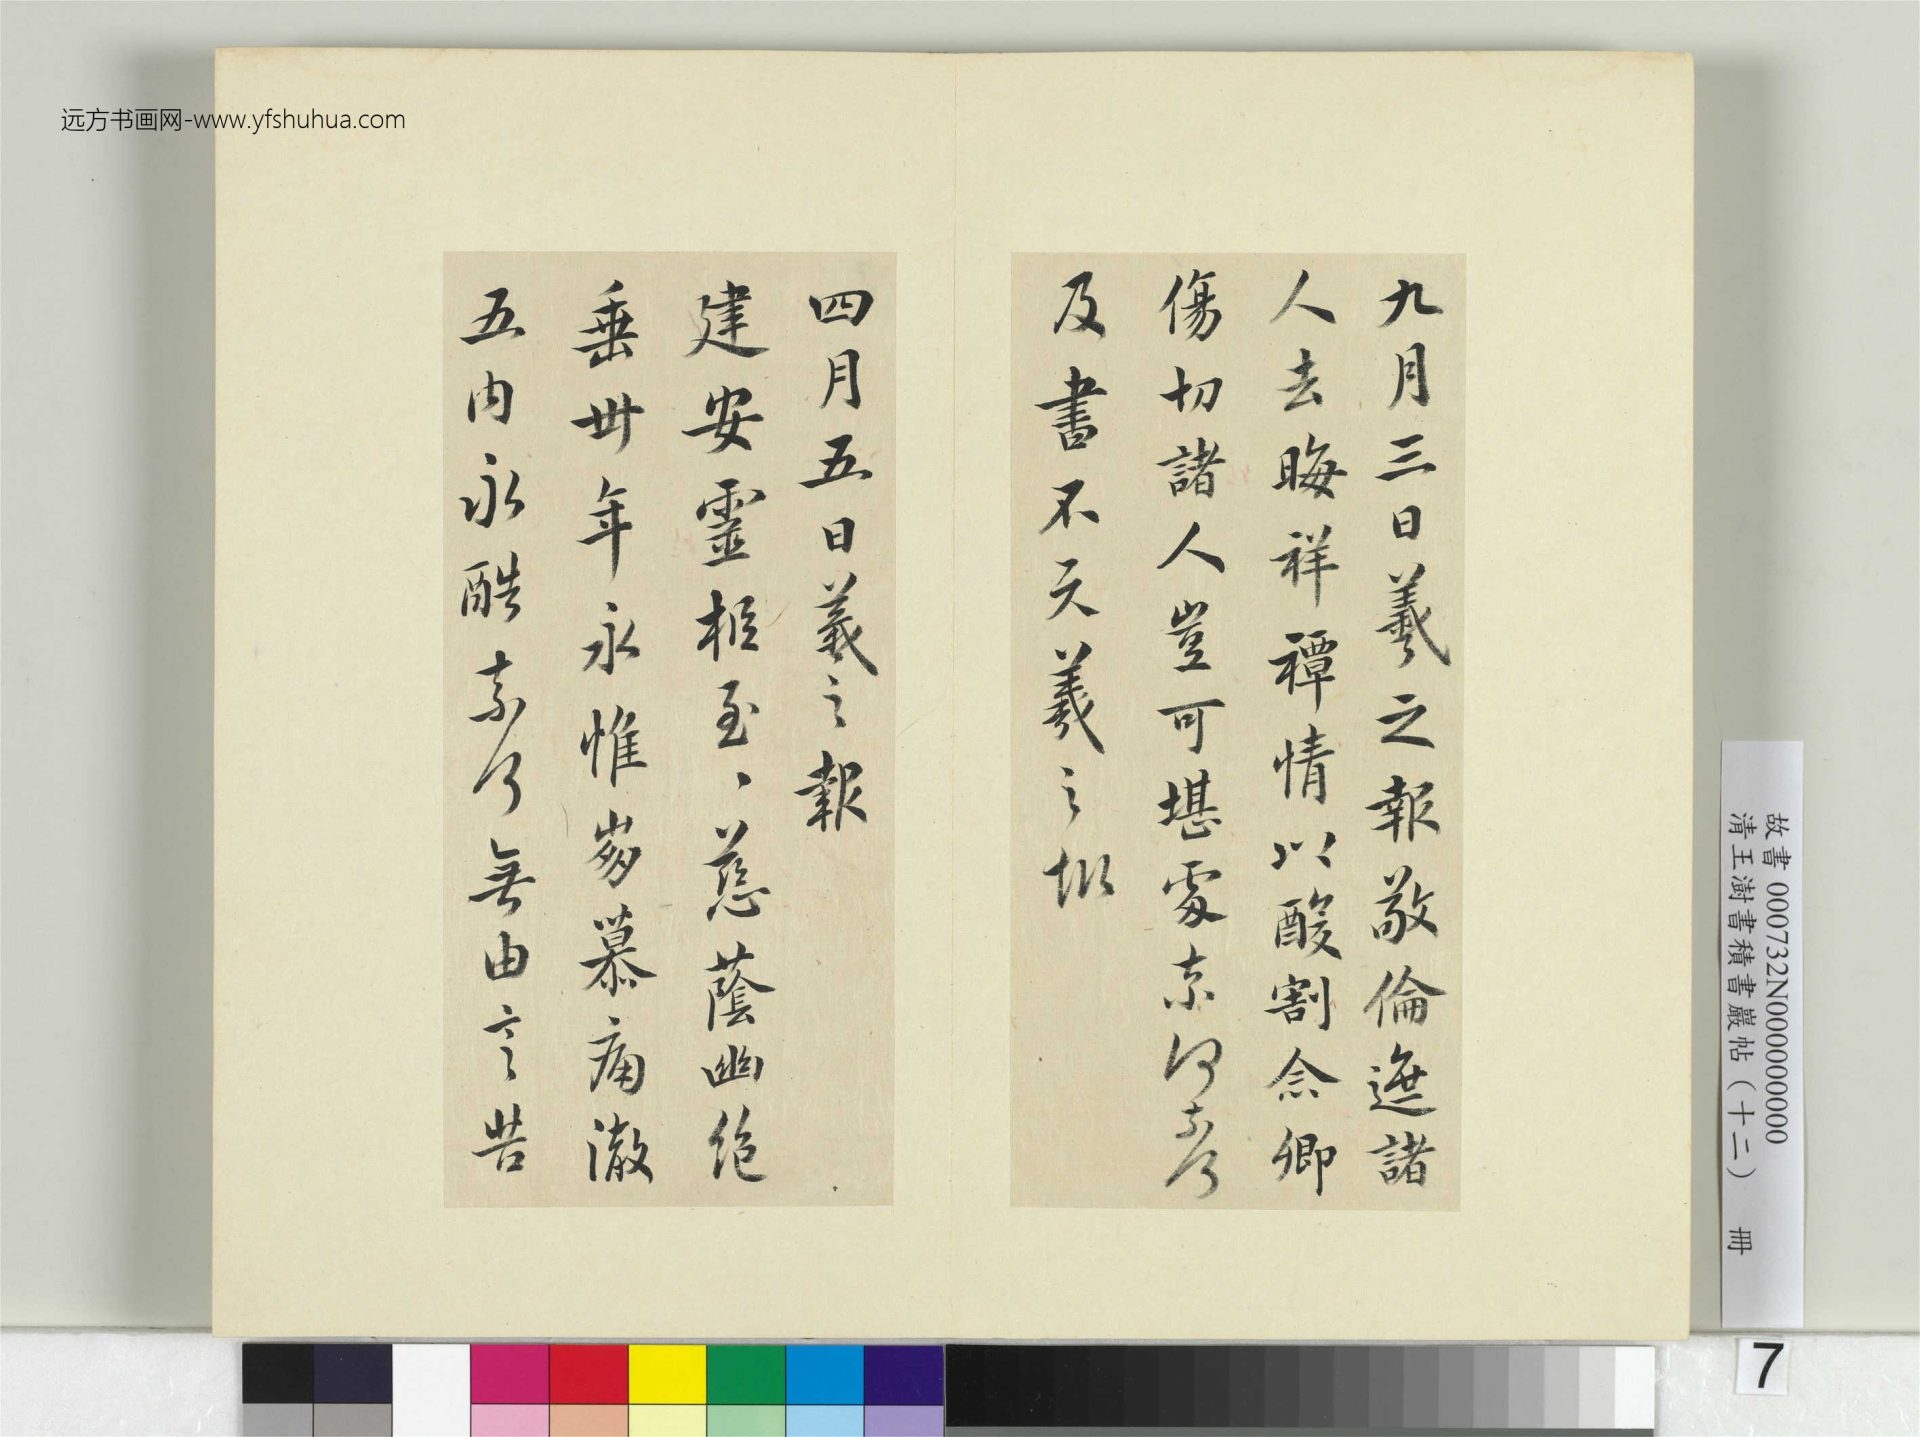 远方书画网-www.yfshuhua.com
九月三日羲之報敬倫遮諸
人去晦祥禫情以酸割念卿
傷切諸人豈可堪處奈何奈何
及書不次羲之報
四月五日羲之報
建安靈柩至、慈蔭幽絕
垂卅年永惟崩慕痛徹
五內永酷奈何無由言告
故書 000732N000000000
清王澍書積書巖帖(十二) 冊
7